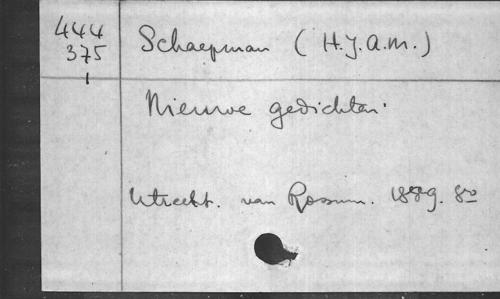 444 Schaepman (H.J.A.M.)
375
1
Nieuwe gedichten.
Utrecht. van Rossum. 1889. 8º